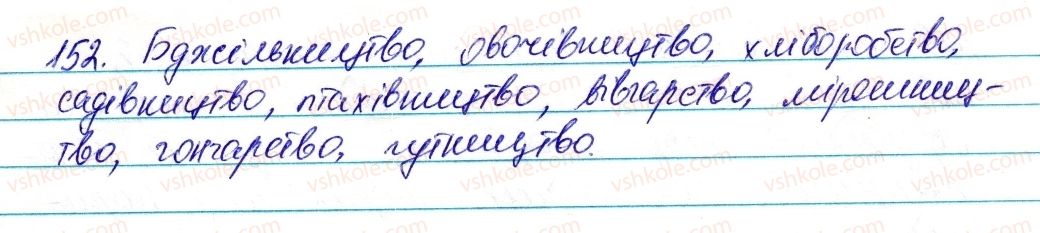 152. Бджільництво, овочівництво, хліборобство,
садівництво, птахівництво, вівчарство, мірошниц-
тво, гончарство, гутництво.
vshkole.com